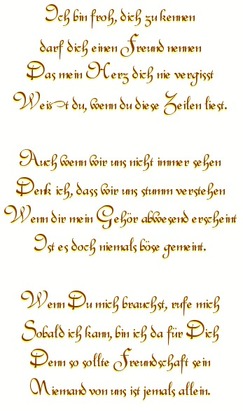 Ich bin froh, dich zu kennen
darf dich einen Freund nennen
Das mein Herz dich nie vergisst
Weis t du, wenn du diese Zeilen liest.
Auch wenn wir uns nicht immer sehen
Denk ich, dass wir uns stumm verstehen
Wenn dir mein Gehör abwesend erscheint
Ist es doch niemals böse gemeint.
Wenn Du mich brauchst, rufe mich
Sobald ich kann, bin ich da für Dich
Denn so sollte Freundschaft sein
Niemand von uns ist jemals allein.